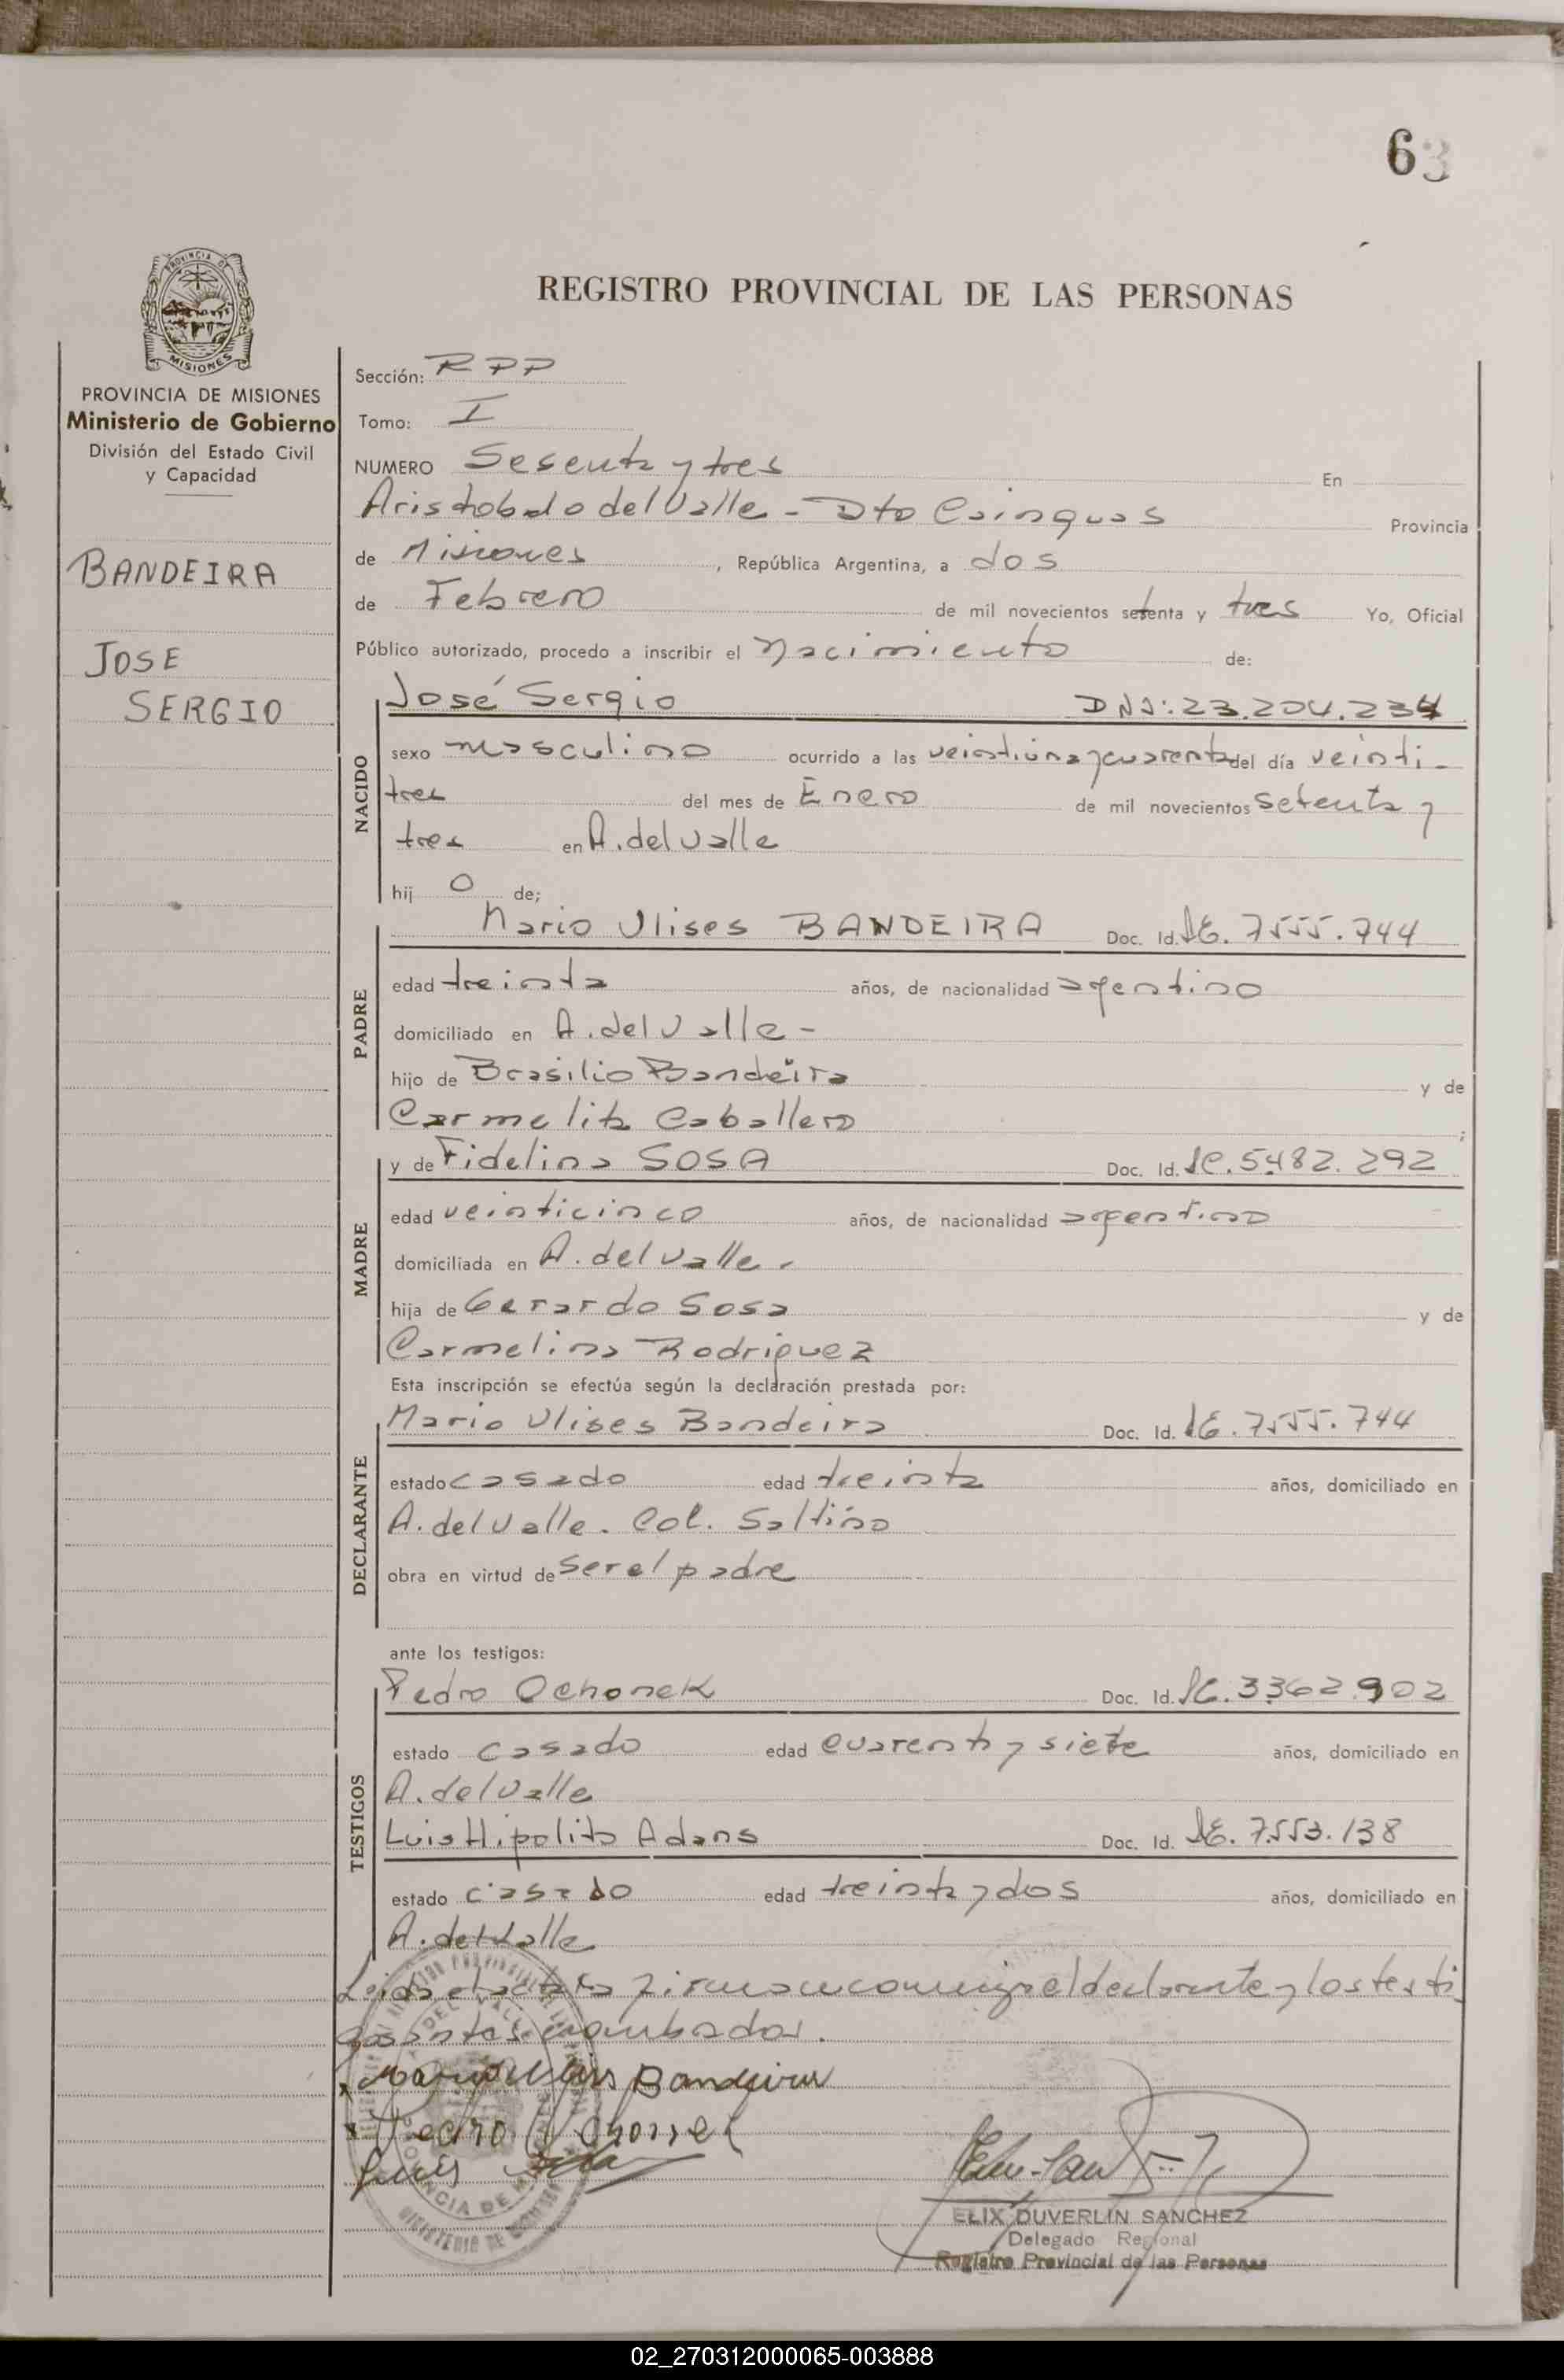 63
REGISTRO PROVINCIAL DE LAS PERSONAS
PROVINCIA DE MISIONES
Ministerio de Gobierno
División del Estado Civil
y Capacidad
BANDEIRA
JOSE
SERGIO
Sección: RPP
Tomo: I
NUMERO Sesenta y tres En
Aristobulo del Valle - Dto Cainguas Provincia
de Misiones, República Argentina, a dos
de Febrero de mil novecientos setenta y tres Yo, Oficial
Público autorizado, procedo a inscribir el Nacimiento de:
José Sergio DNI: 23.204.234
NACIDO
sexo masculino ocurrido a las veintiuna y cuarenta del día veinti-
tres del mes de Enero de mil novecientos setenta y
tres en A. del Valle
hij o de;
PADRE
Mario Ulises BANDEIRA Doc. Id. LE. 7555.744
edad treinta años, de nacionalidad agentino
domiciliado en A. del Valle -
hijo de Brasilio Bandeira y de
Carmelita Caballero ;
MADRE
y de Fidelina SOSA Doc. Id. LC. 5482.292
edad veinticinco años, de nacionalidad argentina
domiciliada en A. del Valle.
hija de Gerardo Sosa y de
Carmelina Rodriguez
Esta inscripción se efectúa según la declaración prestada por:
DECLARANTE
Mario Ulises Bandeira Doc. Id. LE. 7555.744
estado casado edad treinta años, domiciliado en
A. del Valle. Col. Saltiño
obra en virtud de ser el padre
ante los testigos:
TESTIGOS
Pedro Ochonek Doc. Id. LE. 3362.902
estado casado edad cuarenta y siete años, domiciliado en
A. del Valle
Luis Hipolito Adans Doc. Id. LE. 7.553.138
estado casado edad treinta y dos años, domiciliado en
A. del Valle
Leida el acta la firman conmigo el declarante y los testi
gos antes nombrados.
Mario Ulises Bandeira
Pedro Ochonek
Luis
ELIX DUVERLIN SANCHEZ
Delegado Regional
Registro Provincial de las Personas
02_270312000065-003888